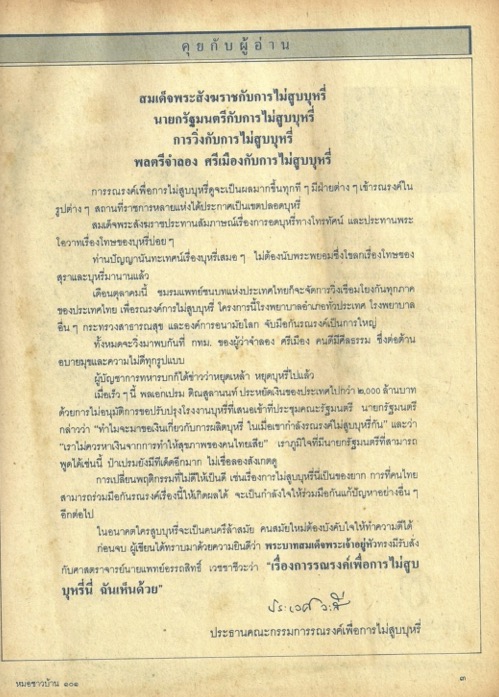 คุยกับผู้อ่าน
สมเด็จพระสังฆราชกับการไม่สูบบุหรี่
นายกรัฐมนตรีกับการไม่สูบบุหรี่
การวิ่งกับการไม่สูบบุหรี่
พลตรีจำลอง ศรีเมืองกับการไม่สูบบุหรี่
การรณรงค์เพื่อการไม่สูบบุหรี่ดูจะเป็นผลมากขึ้นทุกที ๆ มีฝ่ายต่าง ๆ เข้ารณรงค์ใน
รูปต่าง ๆ สถานที่ราชการหลายแห่งได้ประกาศเป็นเขตปลอดบุหรี่
สมเด็จพระสังฆราชประทานสัมภาษณ์เรื่องการอดบุหรี่ทางโทรทัศน์ และประทานพระ
โอวาทเรื่องโทษของบุหรี่บ่อย ๆ
ท่านปัญญานันทะเทศน์เรื่องบุหรี่เสมอ ๆ ไม่ต้องนับพระพยอมซึ่งโขลกเรื่องโทษของ
สุราและบุหรี่มานานแล้ว
เดือนตุลาคมนี้ ชมรมแพทย์ชนบทแห่งประเทศไทยก็จะจัดการวิ่งเชื่อมโยงกันทุกภาค
ของประเทศไทย เพื่อรณรงค์การไม่สูบบุหรี่ โครงการนี้โรงพยาบาลอำเภอทั่วประเทศ โรงพยาบาล
อื่น ๆ กระทรวงสาธารณสุข และองค์การอนามัยโลก จับมือกันรณรงค์เป็นการใหญ่
ทั้งหมดจะวิ่งมาพบกันที่ กทม. ของผู้ว่าจำลอง ศรีเมือง คนดีมีศีลธรรม ซึ่งต่อต้าน
อบายมุขและความไม่ดีทุกรูปแบบ
ผู้บัญชาการทหารบกก็ได้ข่าวว่าหยุดเหล้า หยุดบุหรี่ไปแล้ว
เมื่อเร็ว ๆ นี้ พลเอกเปรม ติณสูลานนท์ ประหยัดเงินของประเทศไปกว่า ๒,๐๐๐ ล้านบาท
ด้วยการไม่อนุมัติการขอปรับปรุงโรงงานบุหรี่ที่เสนอเข้าที่ประชุมคณะรัฐมนตรี นายกรัฐมนตรี
กล่าวว่า “ทำไมจะมาขอเงินเกี่ยวกับการผลิตบุหรี่ ในเมื่อเขากำลังรณรงค์ไม่สูบบุหรี่กัน” และว่า
“เราไม่ควรหาเงินจากการทำให้สุขภาพของคนไทยเสีย” เราภูมิใจที่มีนายกรัฐมนตรีที่สามารถ
พูดได้เช่นนี้ ป๋าเปรมยังมีทีเด็ดอีกมาก ไม่เชื่อลองสังเกตดู
การเปลี่ยนพฤติกรรมที่ไม่ดีให้เป็นดี เช่นเรื่องการไม่สูบบุหรี่นี่เป็นของยาก การที่คนไทย
สามารถร่วมมือกันรณรงค์เรื่องนี้ให้เกิดผลได้ จะเป็นกำลังใจให้ร่วมมือกันแก้ปัญหาอย่างอื่น ๆ
อีกต่อไป
ในอนาคตใครสูบบุหรี่จะเป็นคนครึล้าสมัย คนสมัยใหม่ต้องบังคับใจให้ทำความดีได้
ก่อนจบ ผู้เขียนได้ทราบมาด้วยความยินดีว่า พระบาทสมเด็จพระเจ้าอยู่หัวทรงมีรับสั่ง
กับศาสตราจารย์นายแพทย์อรรถสิทธิ์ เวชชาชีวะว่า “เรื่องการรณรงค์เพื่อการไม่สูบ
บุหรี่นี่ ฉันเห็นด้วย”
ประเวศ วะสี
ประธานคณะกรรมการรณรงค์เพื่อการไม่สูบบุหรี่
หมอชาวบ้าน ๑๐๑
๓